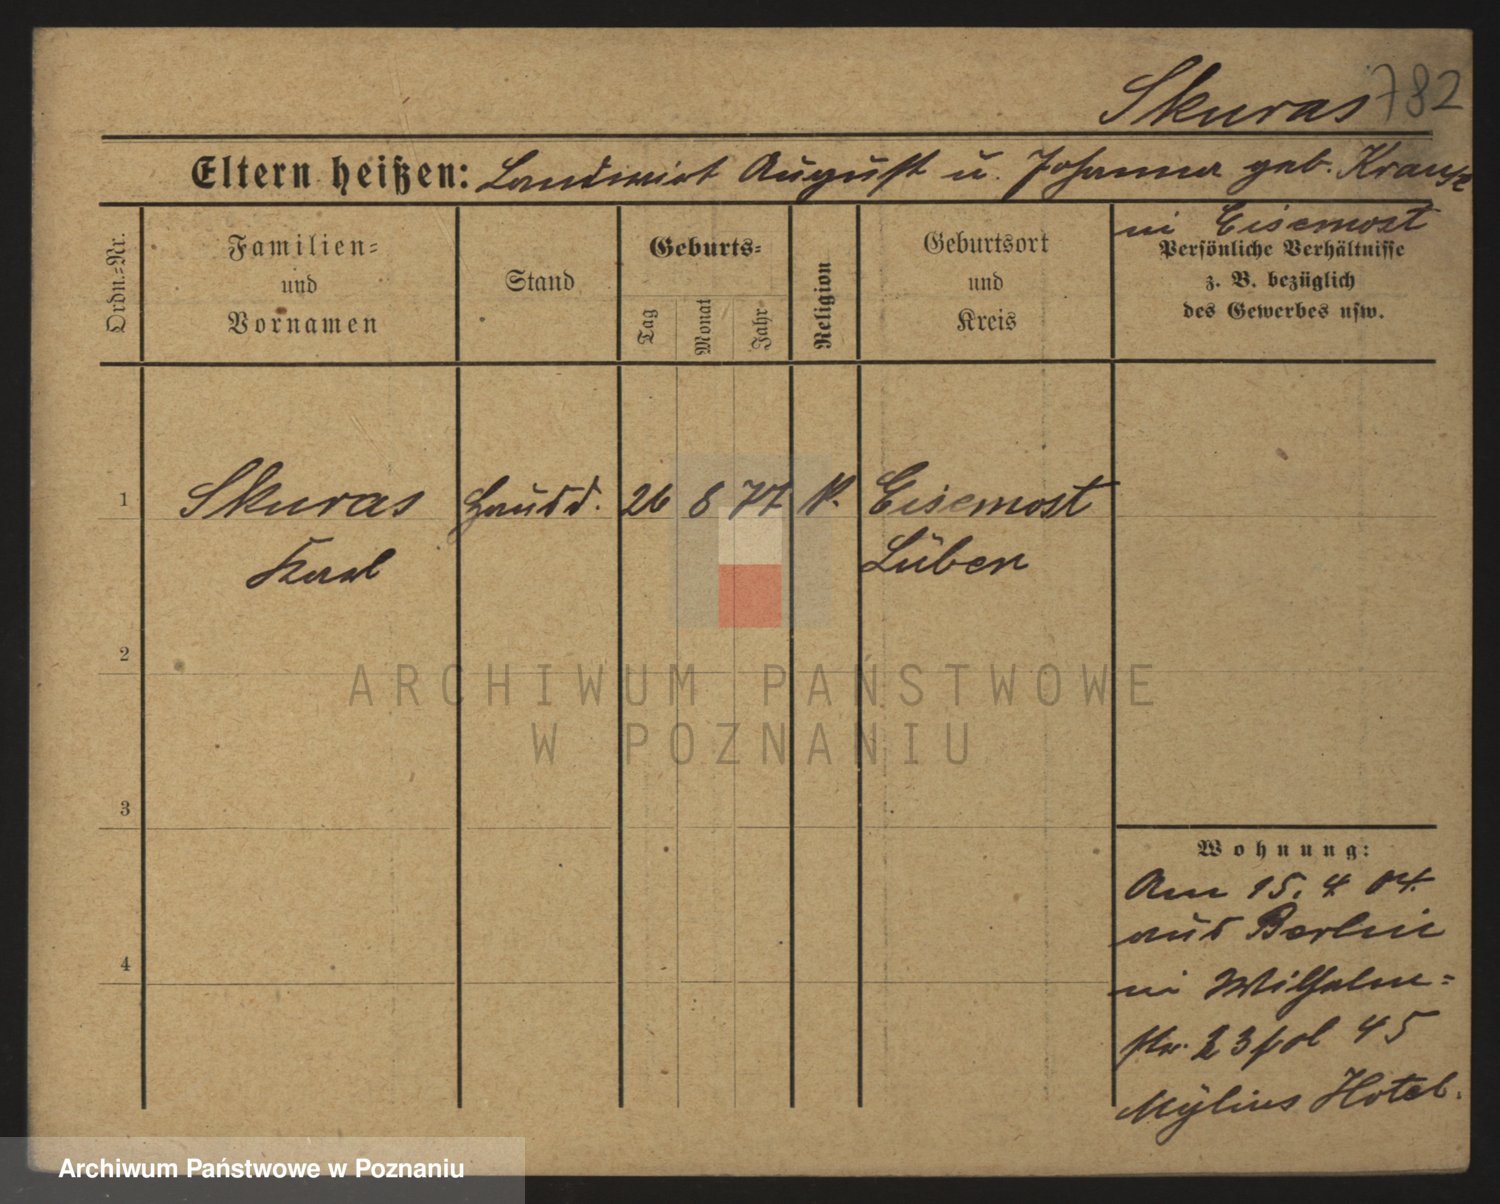 Skuras 782
Eltern heißen: Landwirt August u. Johanna geb. Krause
in Eisemost
Ordn.-Nr.
Familien-
und
Vornamen
Stand
Geburts-
Tag
Monat
Jahr
Religion
Geburtsort
und
Kreis
Persönliche Verhältnisse
z. B. bezüglich
des Gewerbes usw.
1 Skuras Hausd. 26 8 77 Eisemost
Karl Lüben
2
3
4
Wohnung:
Am 15. 4. 04.
aus Berlin
in Wilhelm=
str. 23 pol 45
Mylius Hotel.
ARCHIWUM PAŃSTWOWE
W POZNANIU
Archiwum Państwowe w Poznaniu